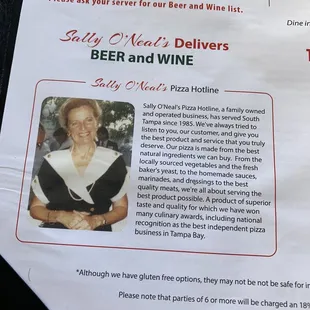 Please ask your server for our Beer and Wine list.
Dine in
Sally O'Neal's Delivers
BEER and WINE
Sally O'Neal's Pizza Hotline
Sally O'Neal's Pizza Hotline, a family owned
and operated business, has served South
Tampa since 1985. We've always tried to
listen to you, our customer, and give you
the best product and service that you truly
deserve. Our pizza is made from the best
natural ingredients we can buy. From the
locally sourced vegetables and the fresh
baker's yeast, to the homemade sauces,
marinades, and dressings to the best
quality meats, we're all about serving the
best product possible. A product of superior
taste and quality for which we have won
many culinary awards, including national
recognition as the best independent pizza
business in Tampa Bay.
*Although we have gluten free options, they may not be safe for
Please note that parties of 6 or more will be charged an 18%